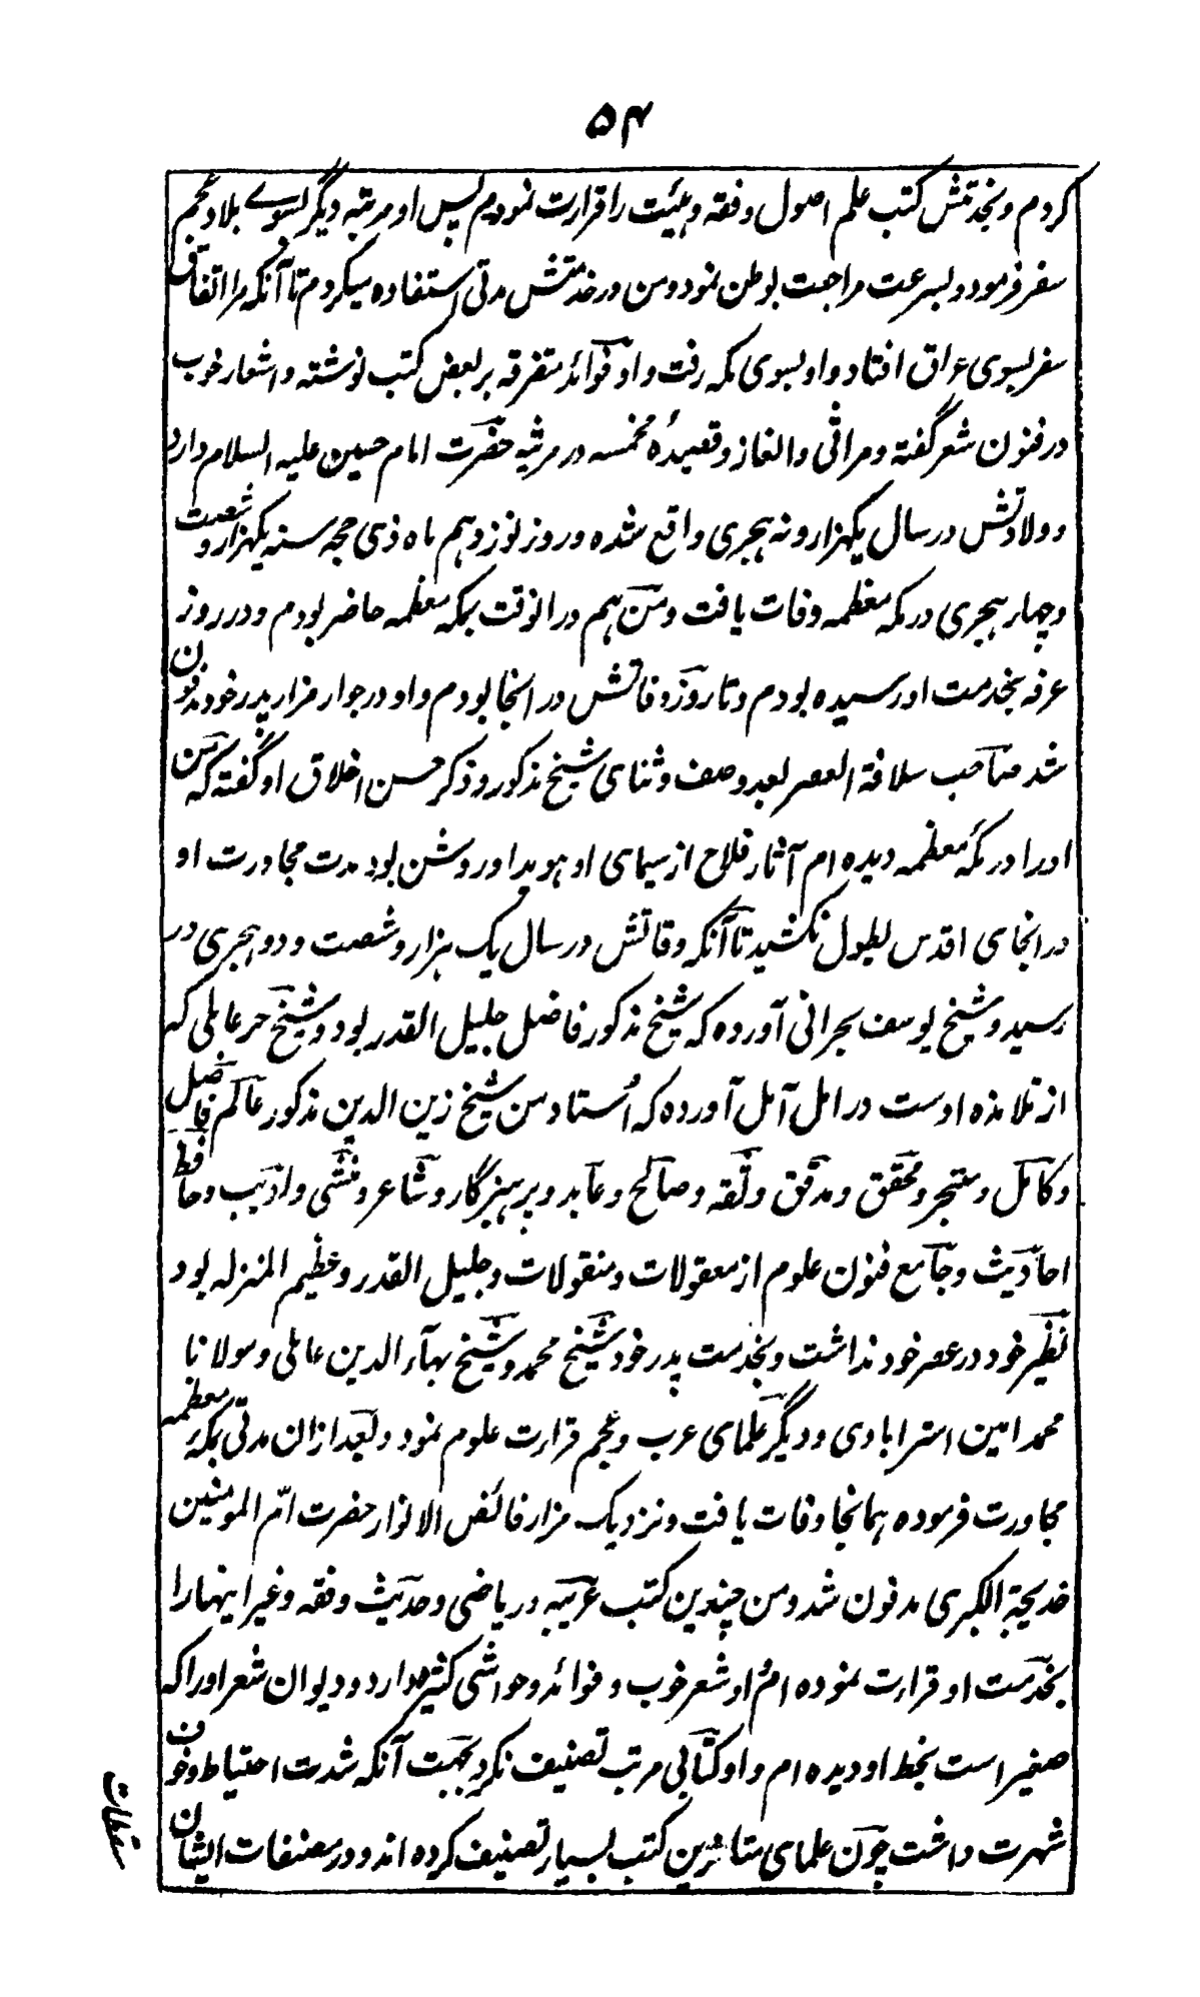 ۵۴
کردم و بخدمتش کتب علم اصول و فقه و هیئت را قرارت نمودم پس او مرتبه دیگر بسوے بلاد عجم
سفر فرمود و بسرعت مراجعت بوطن نمود و من در خدمتش مدتی استفاده میکردم تا آنکه مرا اتفاق
سفر بسوی عراق افتاد و او بسوی مکه رفت و او فوائد متفرقه بر بعض کتب نوشته و اشعار خوب
در فنون شعر گفته و مراثی و الغاز و قصیدهٔ مخمسه در مرثیه حضرت امام حسین علیه السلام دارد
و ولادتش در سال یکهزار و نه هجری واقع شده و روز نوزدهم ماه ذی حجه سنه یکهزار و شصت
و چهار هجری در مکه معظمه وفات یافت و من هم در انوقت بمکه معظمه حاضر بودم و در روز
عرفه بخدمت او رسیده بودم و تا روز وفاتش در انجا بودم و او در جوار مزار پدر خود مدفون
شد صاحب سلافة العصر بعد وصف و ثنای شیخ مذکور و ذکر حسن اخلاق او گفته که من
اورا در مکهٔ معظمه دیده ام آثار فلاح از سیمای او هویدا و روشن بود مدت مجاورت او
در انجای اقدس بطول نکشید تا آنکه وفاتش در سال یک هزار و شصت و دو هجری در
رسید و شیخ یوسف بحرانی آورده که شیخ مذکور فاضل جلیل القدر بود و شیخ حر عاملی که
از تلامذه اوست در امل آمل آورده که اُستاد من شیخ زین الدین مذکور عالم فاضل
و کامل و متبحر و محقق و مدقق و ثقه و صالح و عابد و پرهیزگار و شاعر و منشی و ادیب و حافظ
احادیث و جامع فنون علوم از معقولات و منقولات و جلیل القدر و عظیم المنزله بود
نظیر خود در عصر خود نداشت و بخدمت پدر خود شیخ محمد و شیخ بهاء الدین عاملی و مولانا
محمد امین استرابادی و دیگر علمای عرب و عجم قرارت علوم نمود و بعد ازان مدتی بمکهٔ معظمه
مجاورت فرموده همانجا وفات یافت و نزدیک مزار فائض الانوار حضرت ام المومنین
خدیجة الکبری مدفون شد و من چندین کتب عربیه و ریاضی و حدیث و فقه و غیر اینها را
بخدمت او قرارت نموده ام و او شعر خوب و فوائد و حواشی کثیره دارد و دیوان شعر اورا که
صغیر است بخط او دیده ام و او کتابی مرتب تصنیف نکرد بجهت آنکه شدت احتیاط و خوف
شهرت داشت چون علمای متاخرین کتب بسیار تصنیف کرده اند و در مصنفات ایشان
سقطات